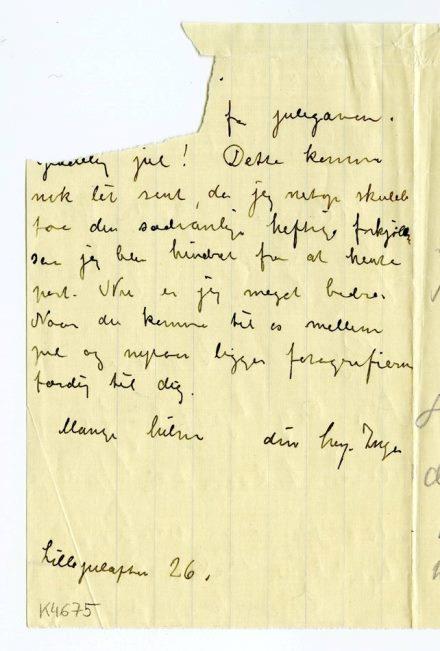 for julegaven.
jul! Dette kommer
nok lit sent, da jeg netop skulde
faa den sedvanlige heftige forkjølelse
saa jeg blev hindret fra at hente
port. Nu er jeg meget bedre.
Naar du kommer til os mellem
jul og nytaar ligger fotografierne
færdig til dig.
Mange hilsner din heng. Inga
Lillejulaften 26.
K4675